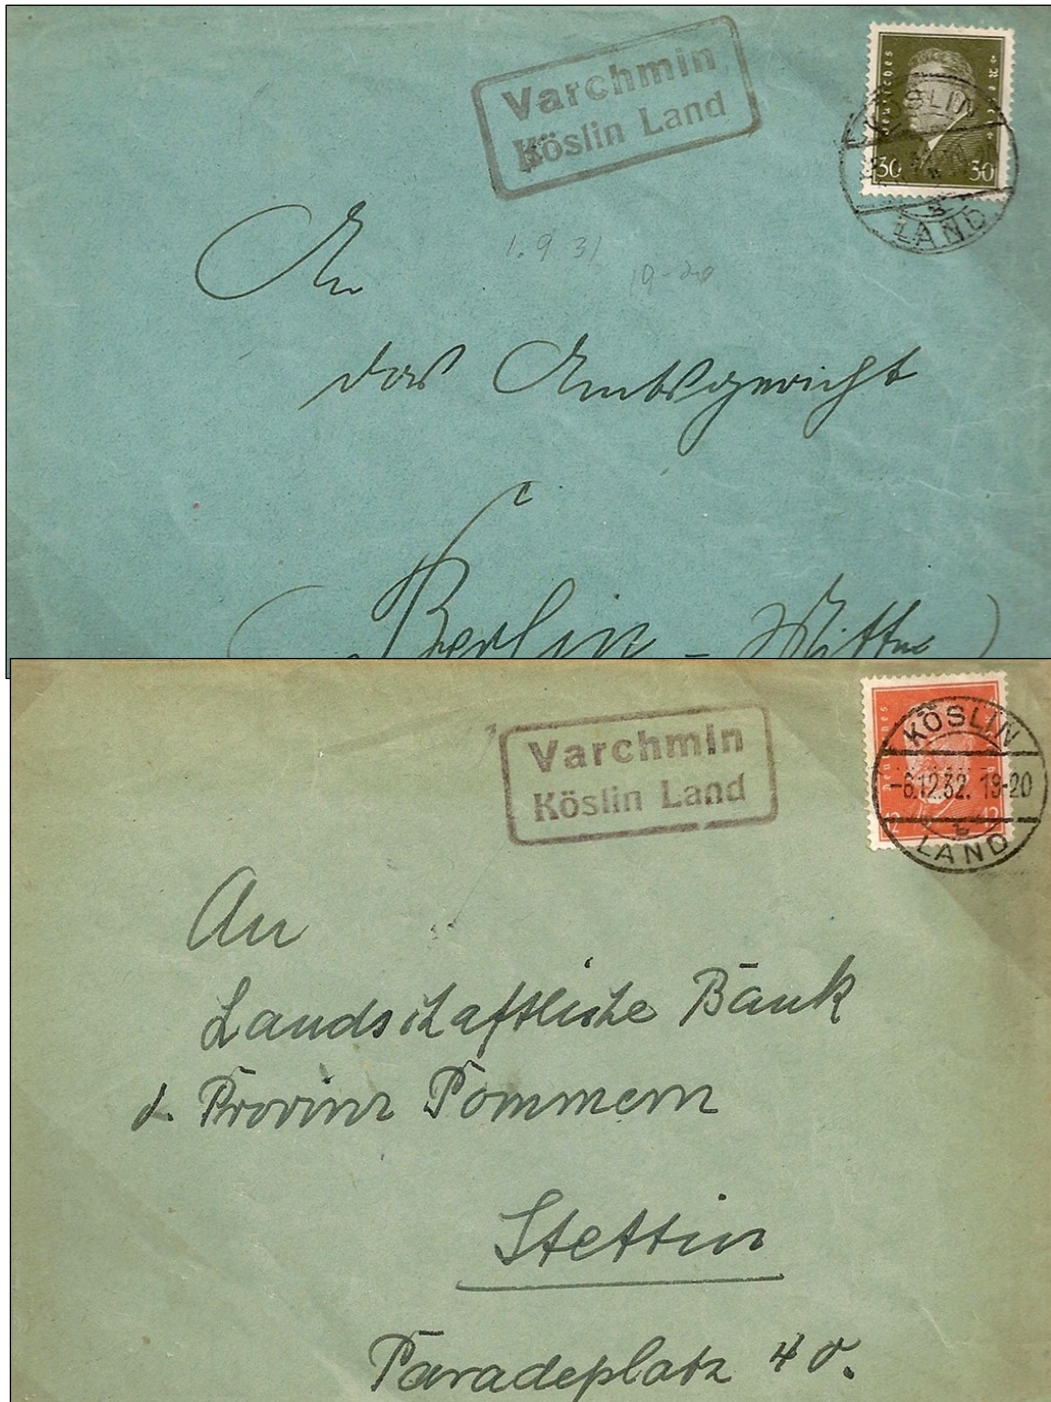 Varchmin
Köslin Land
Deutsches Reich
30 30
KÖSLIN
LAND
1.9 31
19-20
An
das Amtsgericht
Berlin - Mitte
Varchmin
Köslin Land
KÖSLIN
-6.12.32. 19-20
LAND
An
Landschaftliche Bank
d. Provinz Pommern
Stettin
Paradeplatz 40.